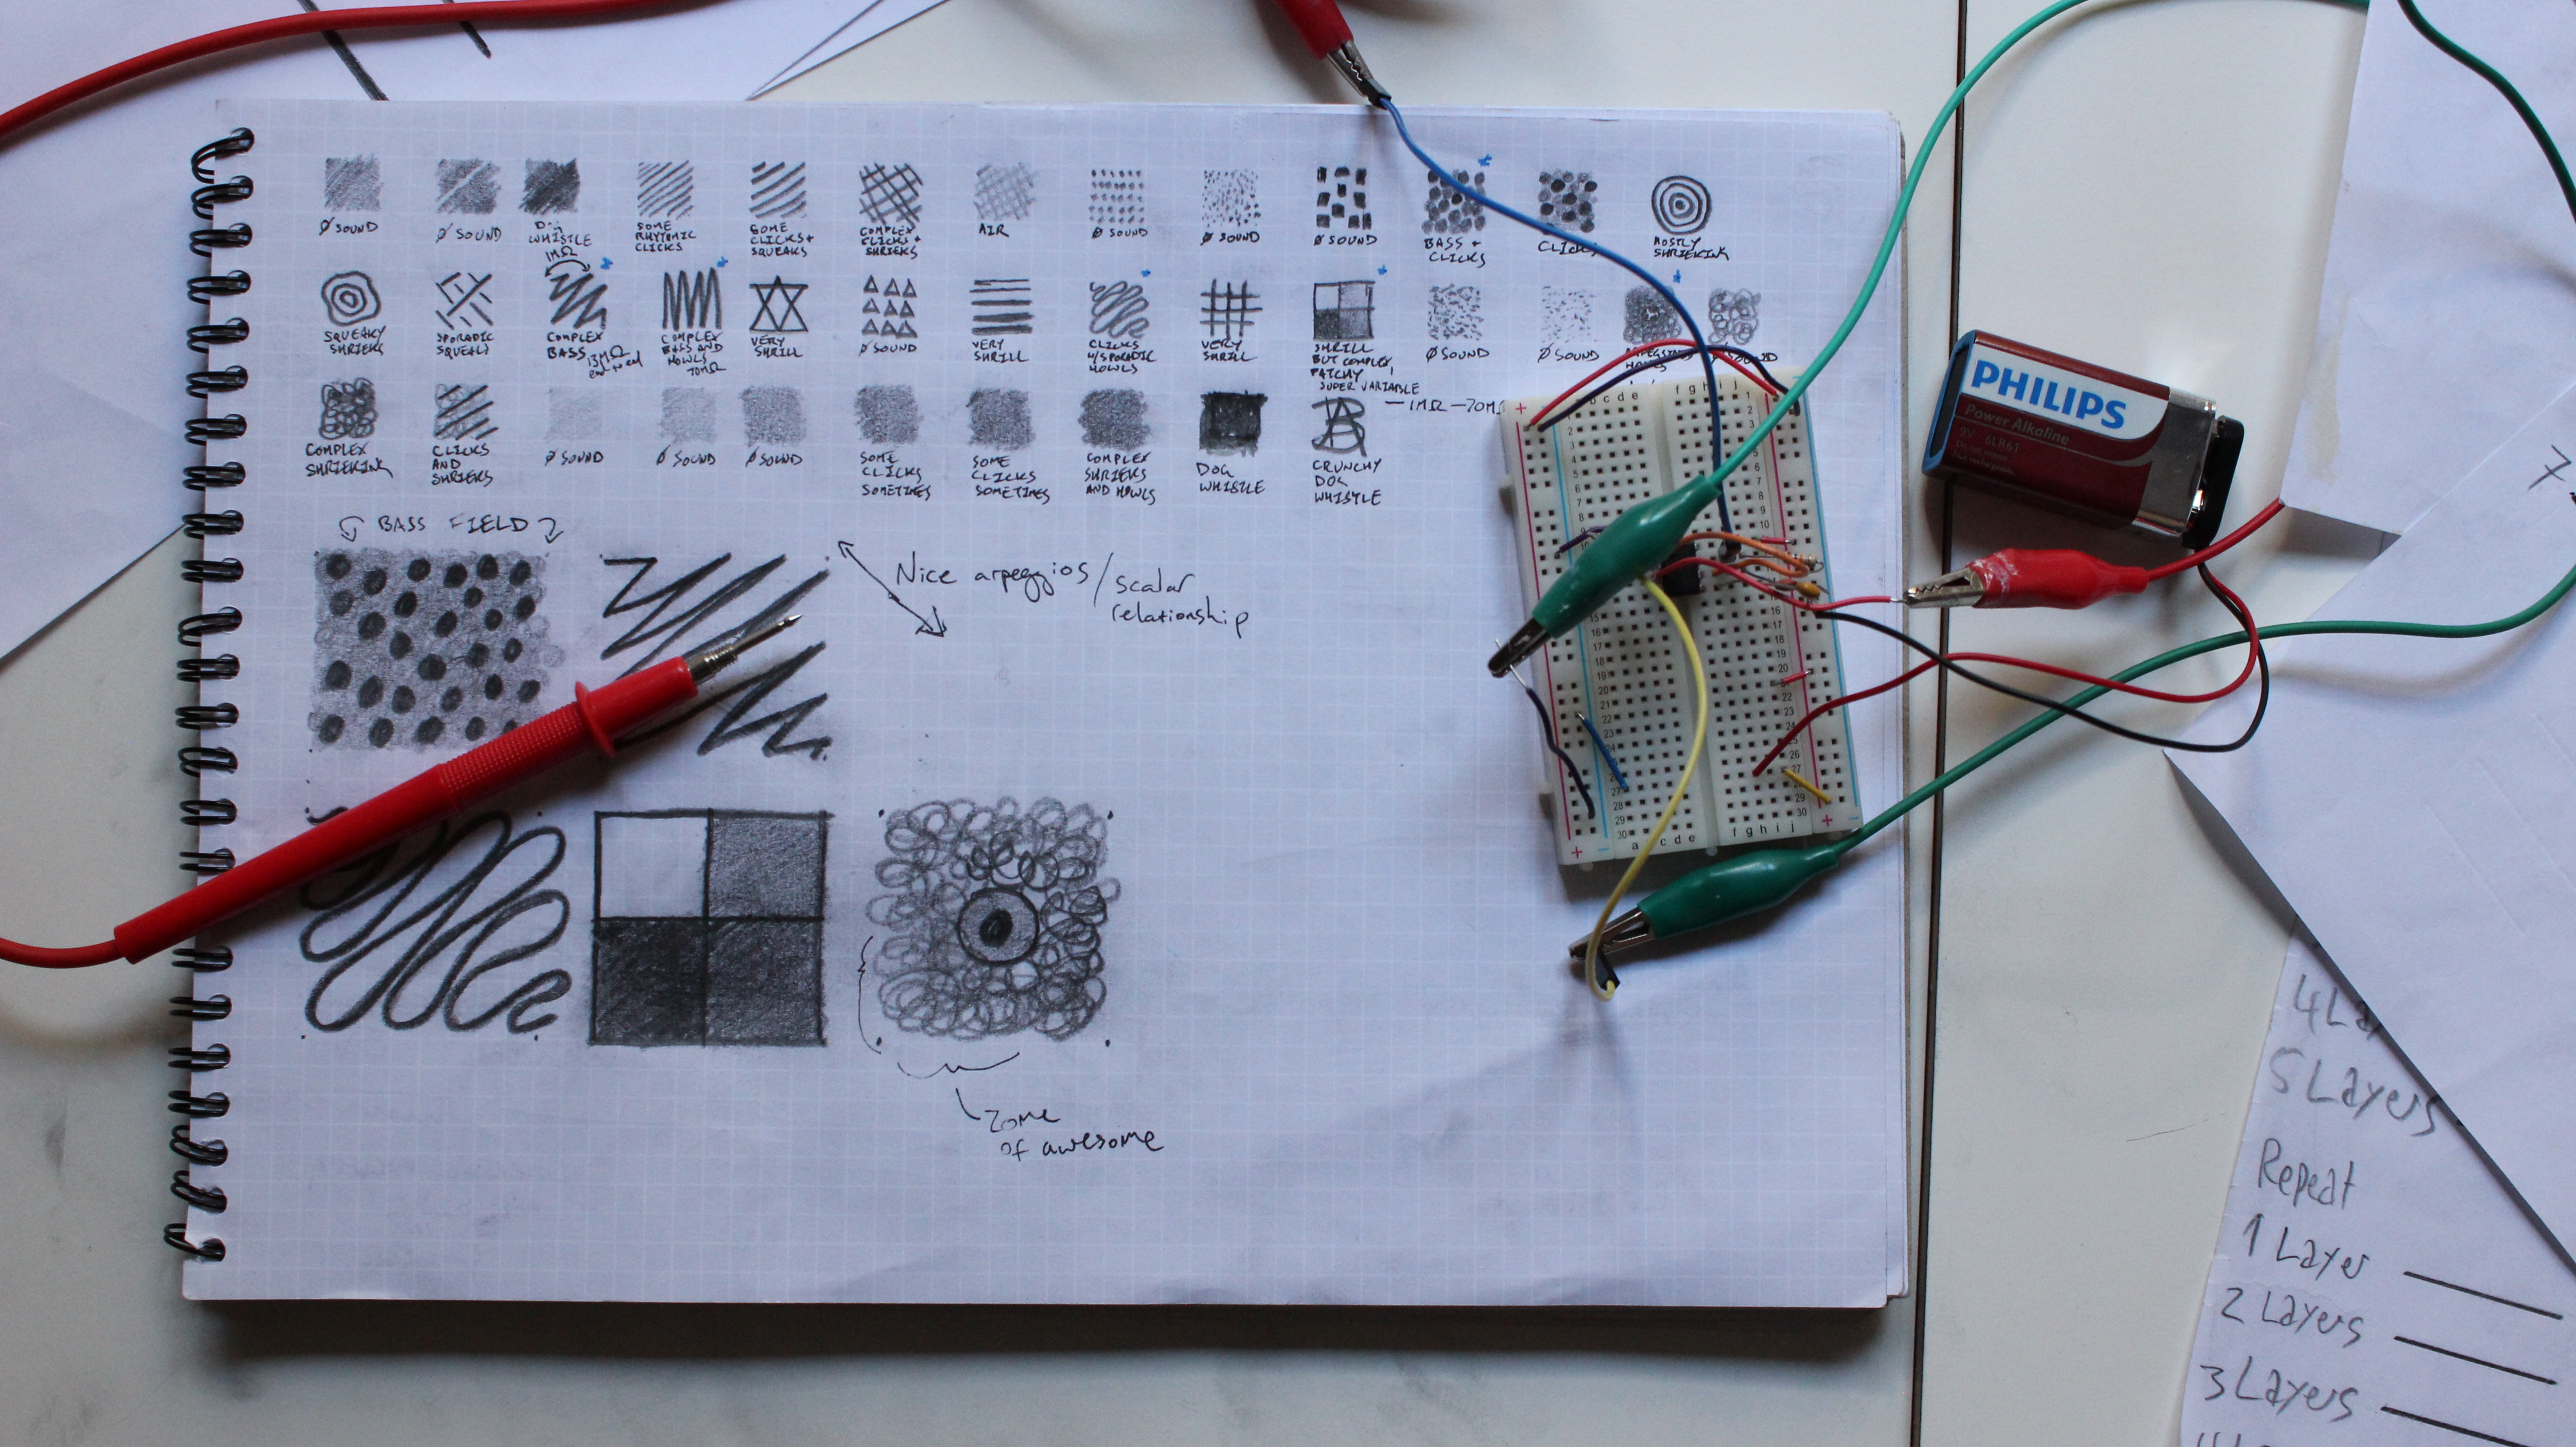 Ø SOUND
Ø SOUND
DOG
WHISTLE
1MΩ
SOME
RHYTHMIC
CLICKS
SOME
CLICKS +
SQUEAKS
COMPLEX
CLICKS +
SHRIEKS
AIR
Ø SOUND
Ø SOUND
Ø SOUND
BASS +
CLICKS
CLICKS
MOSTLY
SHRIEKING
SQUEAKY
SHRIEKS
SPORADIC
SQUEALS
COMPLEX
BASS
13MΩ
end to end
COMPLEX
BASS AND
HOWLS
70MΩ
VERY
SHRILL
Ø SOUND
VERY
SHRILL
CLICKS
W/SPORADIC
HOWLS
VERY
SHRILL
SHRILL
BUT COMPLEX,
PATCHY
SUPER VARIABLE
— 1MΩ — 70M
Ø SOUND
Ø SOUND
HOWLS
COMPLEX
SHRIEKING
CLICKS
AND
SHRIEKS
Ø SOUND
Ø SOUND
Ø SOUND
SOME
CLICKS
SOMETIMES
SOME
CLICKS
SOMETIMES
COMPLEX
SHRIEKS
AND HOWLS
DOG
WHISTLE
CRUNCHY
DOG
WHISTLE
BASS FIELD
Nice arpeggios/scalar
relationship
Zone
of awesome
PHILIPS
Power Alkaline
9V · 6LR61
7
4 La
5 Layers
Repeat
1 Layer
2 Layers
3 Layers